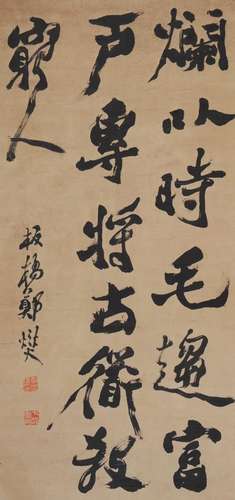 爛以時毛趨富
戶專將古衟救
窮人
板橋鄭燮